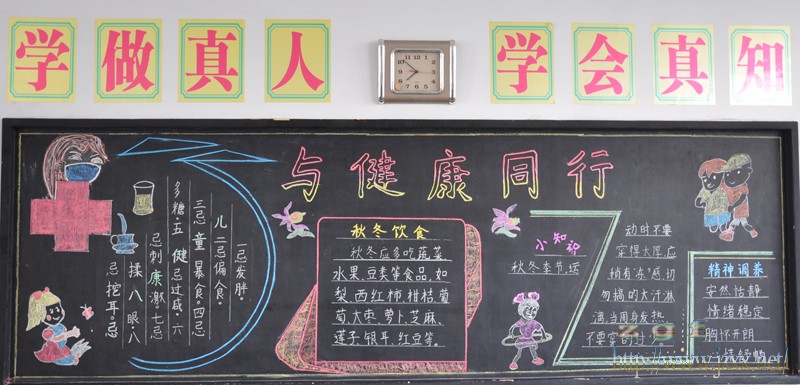 学做真人
学会真知
与健康同行
一忌发胖。
儿二忌偏食。
三忌童暴食。四忌
多糖。五健忌过咸。六
忌刺康激。七忌
揉八眼。八
忌挖耳。忌
秋冬饮食
秋冬应多吃蔬菜
水果、豆类等食品,如
梨、西红柿、柑桔、葡
萄、大枣、萝卜、芝麻、
莲子、银耳、红豆等。
小知识
秋冬季节,运
动时不要
穿得太厚,应
稍有"冻"感,切
勿搞的大汗淋
适当周身发热,
不要穿的过
精神调养
安然恬静
情绪稳定
胸怀开朗